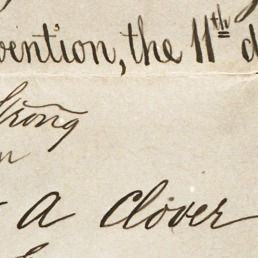 vention, the 11th d
Strong
a clover